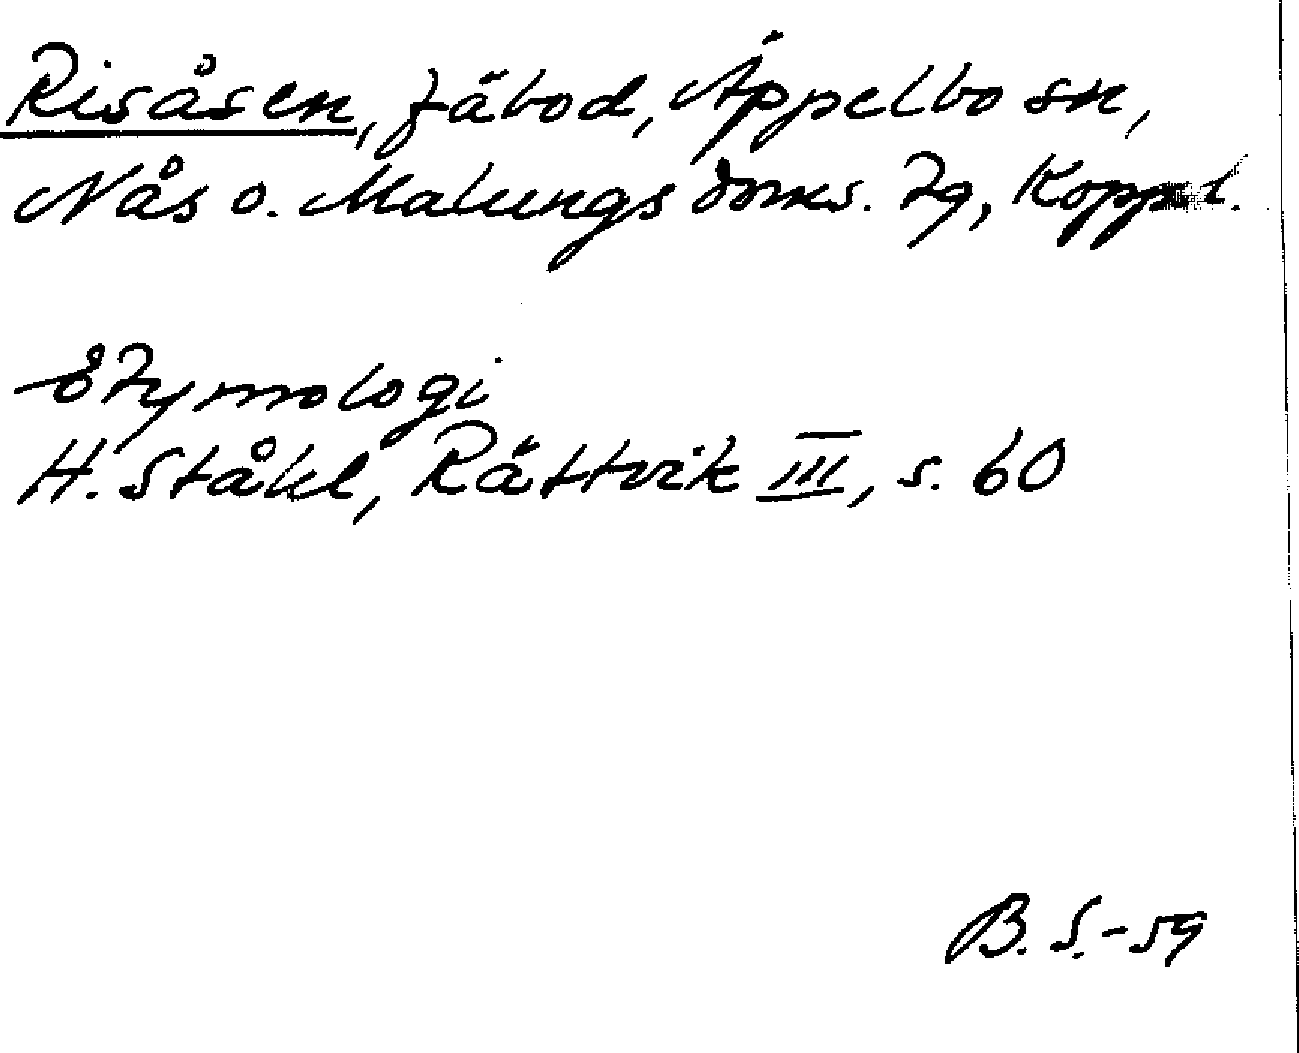 Risåsen, fäbod, Äppelbo sn,
Nås o. Malungs doms. tg, Kopp. l.
Etymologi
H. Ståhl, Rättvik III, s. 60
B. S.-59